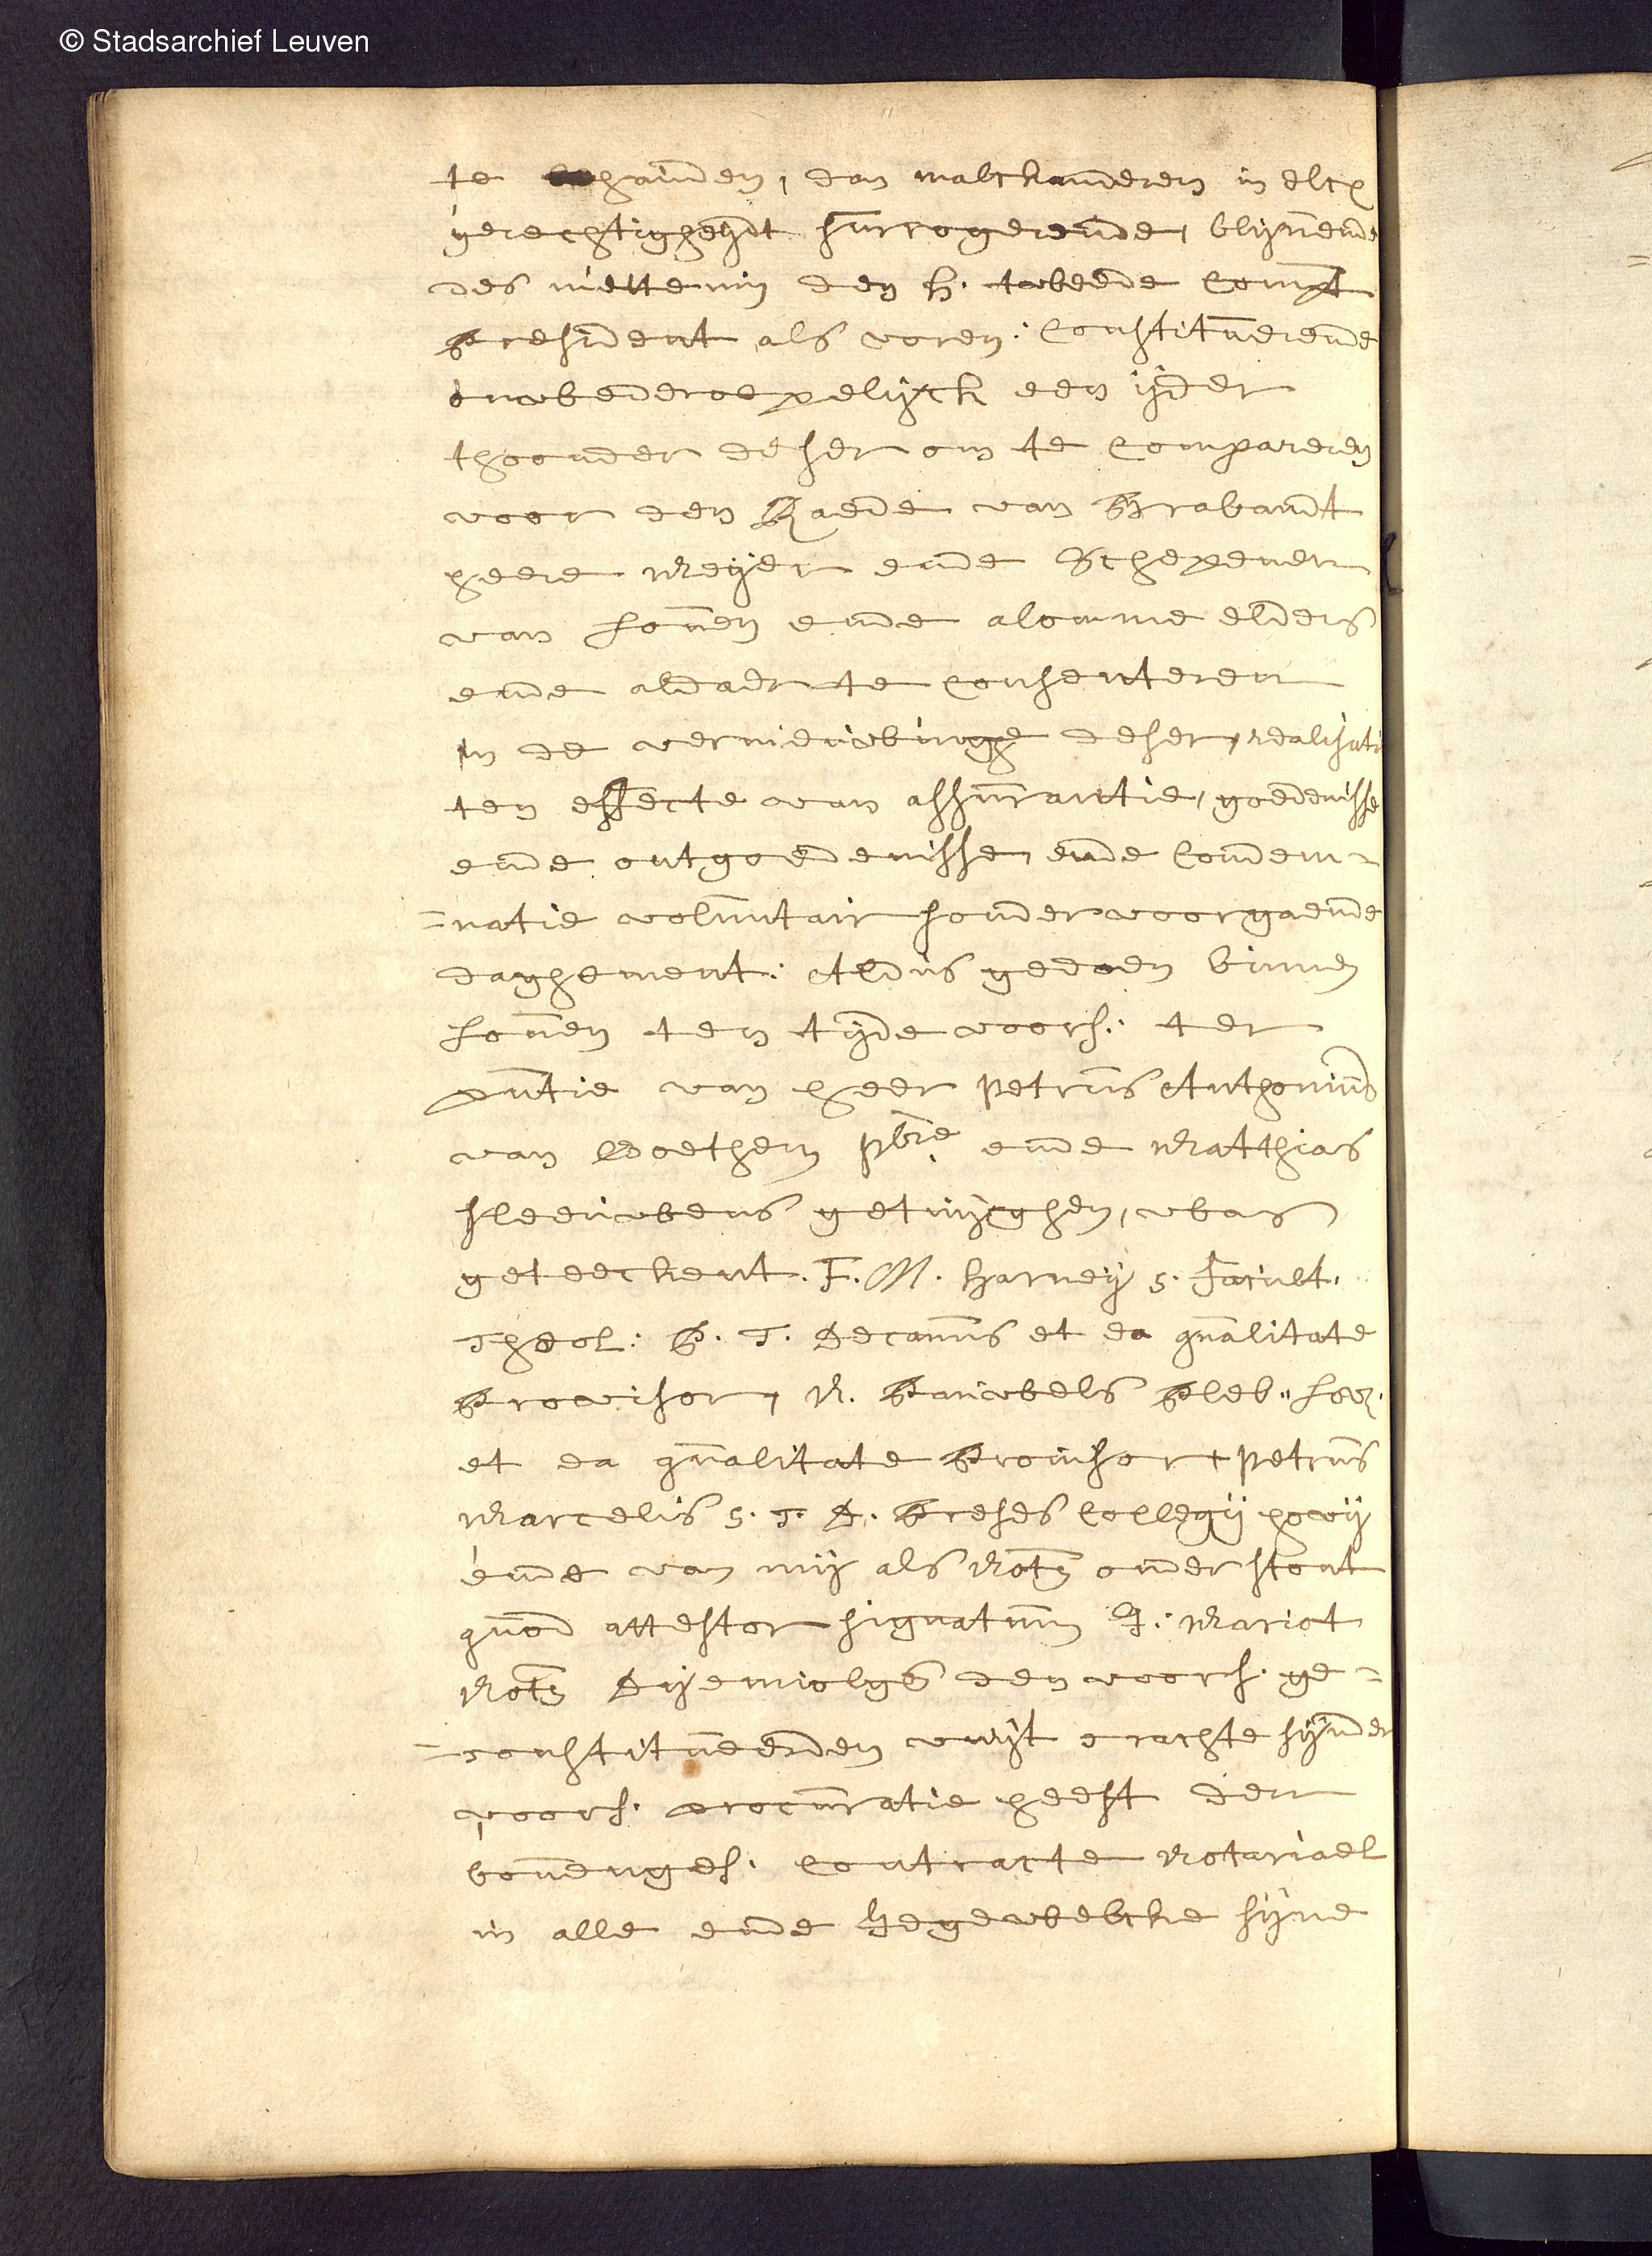 © Stadsarchief Leuven
te behanden, den malckanderen in elcx
gerechtigheydt surrogerende, blijvende
des niettemin den h. tweede Compt
President als voren: Constituerende
onwederroepelijck een ijder
thoonder deser om te Compareren
voor den Raede van Brabandt
heere Meyer ende Schepenen
van Loven ende alomme elders
ende aldaer te Consenteren
in de vernieuwinge deser, realisati
ten effecte van assurantie, goedenisse
ende ontgoedenisse, ende Condem-
=natie voluntair sonder voorgaende
daghement: Aldus gedaen binnen
Loven ten tijde voors.: ter
pntie van heer petrus Anthonius
van Goethem pbre ende Matthias
Sleeuwens getuyghen, was
geteeckent. F. M. Harney S. Facult.
Theol: P. T. Decanus et ea qualitate
Provisor, N. Pauwels Pleb. Lov.
et ea qualitate Provisor + petrus
Marcelis S. T. D. Preses Collegij hovij
ende van mij als Nots onderstont
quod attestor signatum J: Mariot
Nots Dijenvolgens den voors. ge=
=constitueerden vuyt crachte sijnder
voors. procuratie heeft den
bovenges. Contracte Notariael
in alle ende yegewelcke sijne